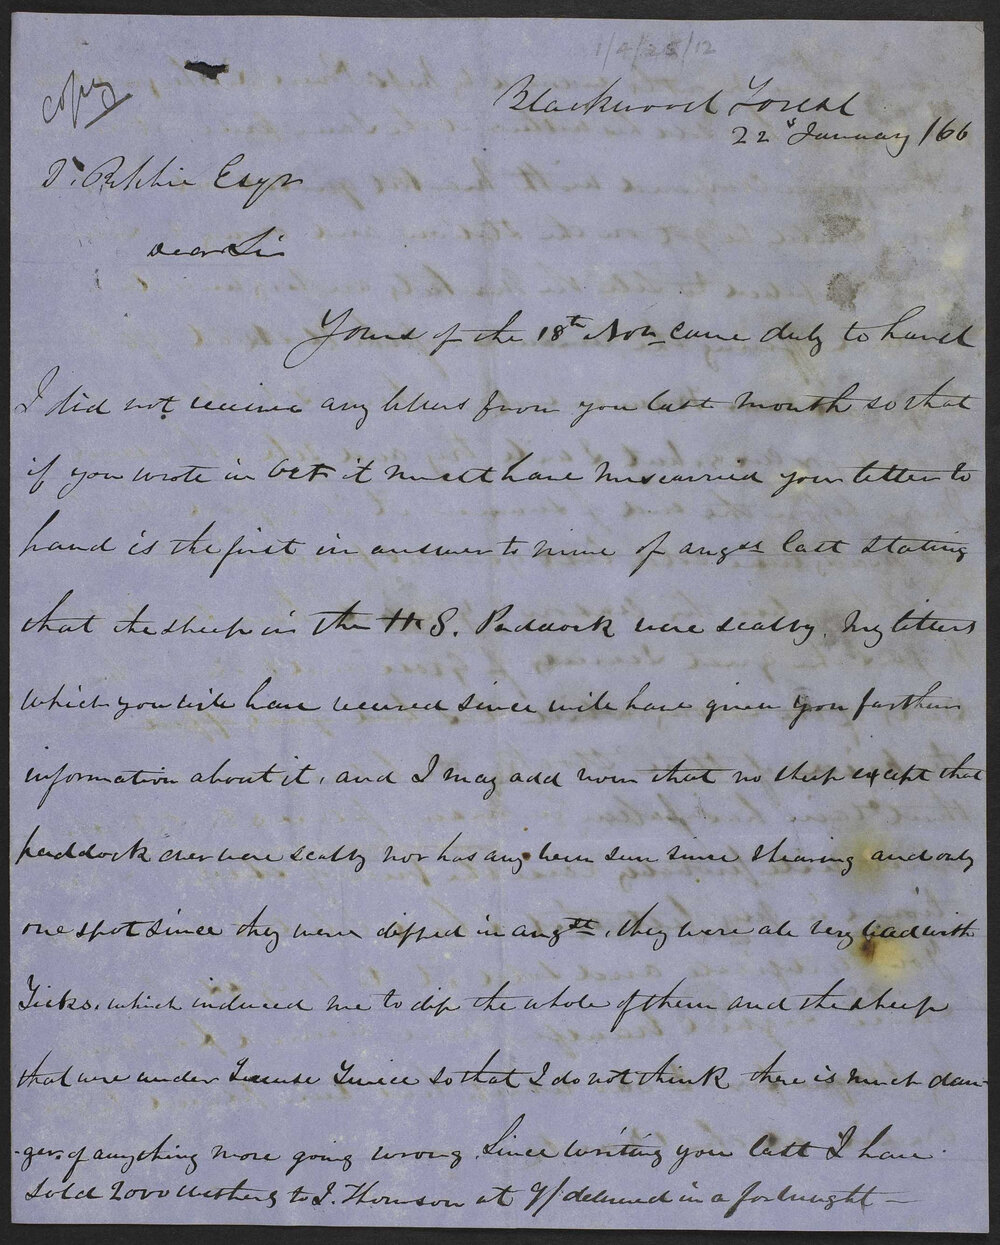 1/4/25/12
copy
Blackwood Forest
22d January /66
D. Ritchie Esqr
Dear Sir
Yours of the 18th Nov came duly to hand
I did not receive any letters from you last month so that
if you wrote in Oct it must have miscarried your letter to
hand is the first in answer to mine of augst last stating
that the sheep in the H S. Paddock were scabby. My letters
which you will have received since will have given you further
information about it, and I may add now that no sheep except that
paddock ever were scabby nor has any been seen since shearing and only
one spot since they were dipped in augst, they were all very bad with
Ticks. which induced me to dip the whole of them and the sheep
that were under License Twice so that I do not think there is much dan-
-ger of anything more going wrong. Since writing you last I have
Sold 2000 wethers to J. Thomson at 9/ delivered in a fortnight -